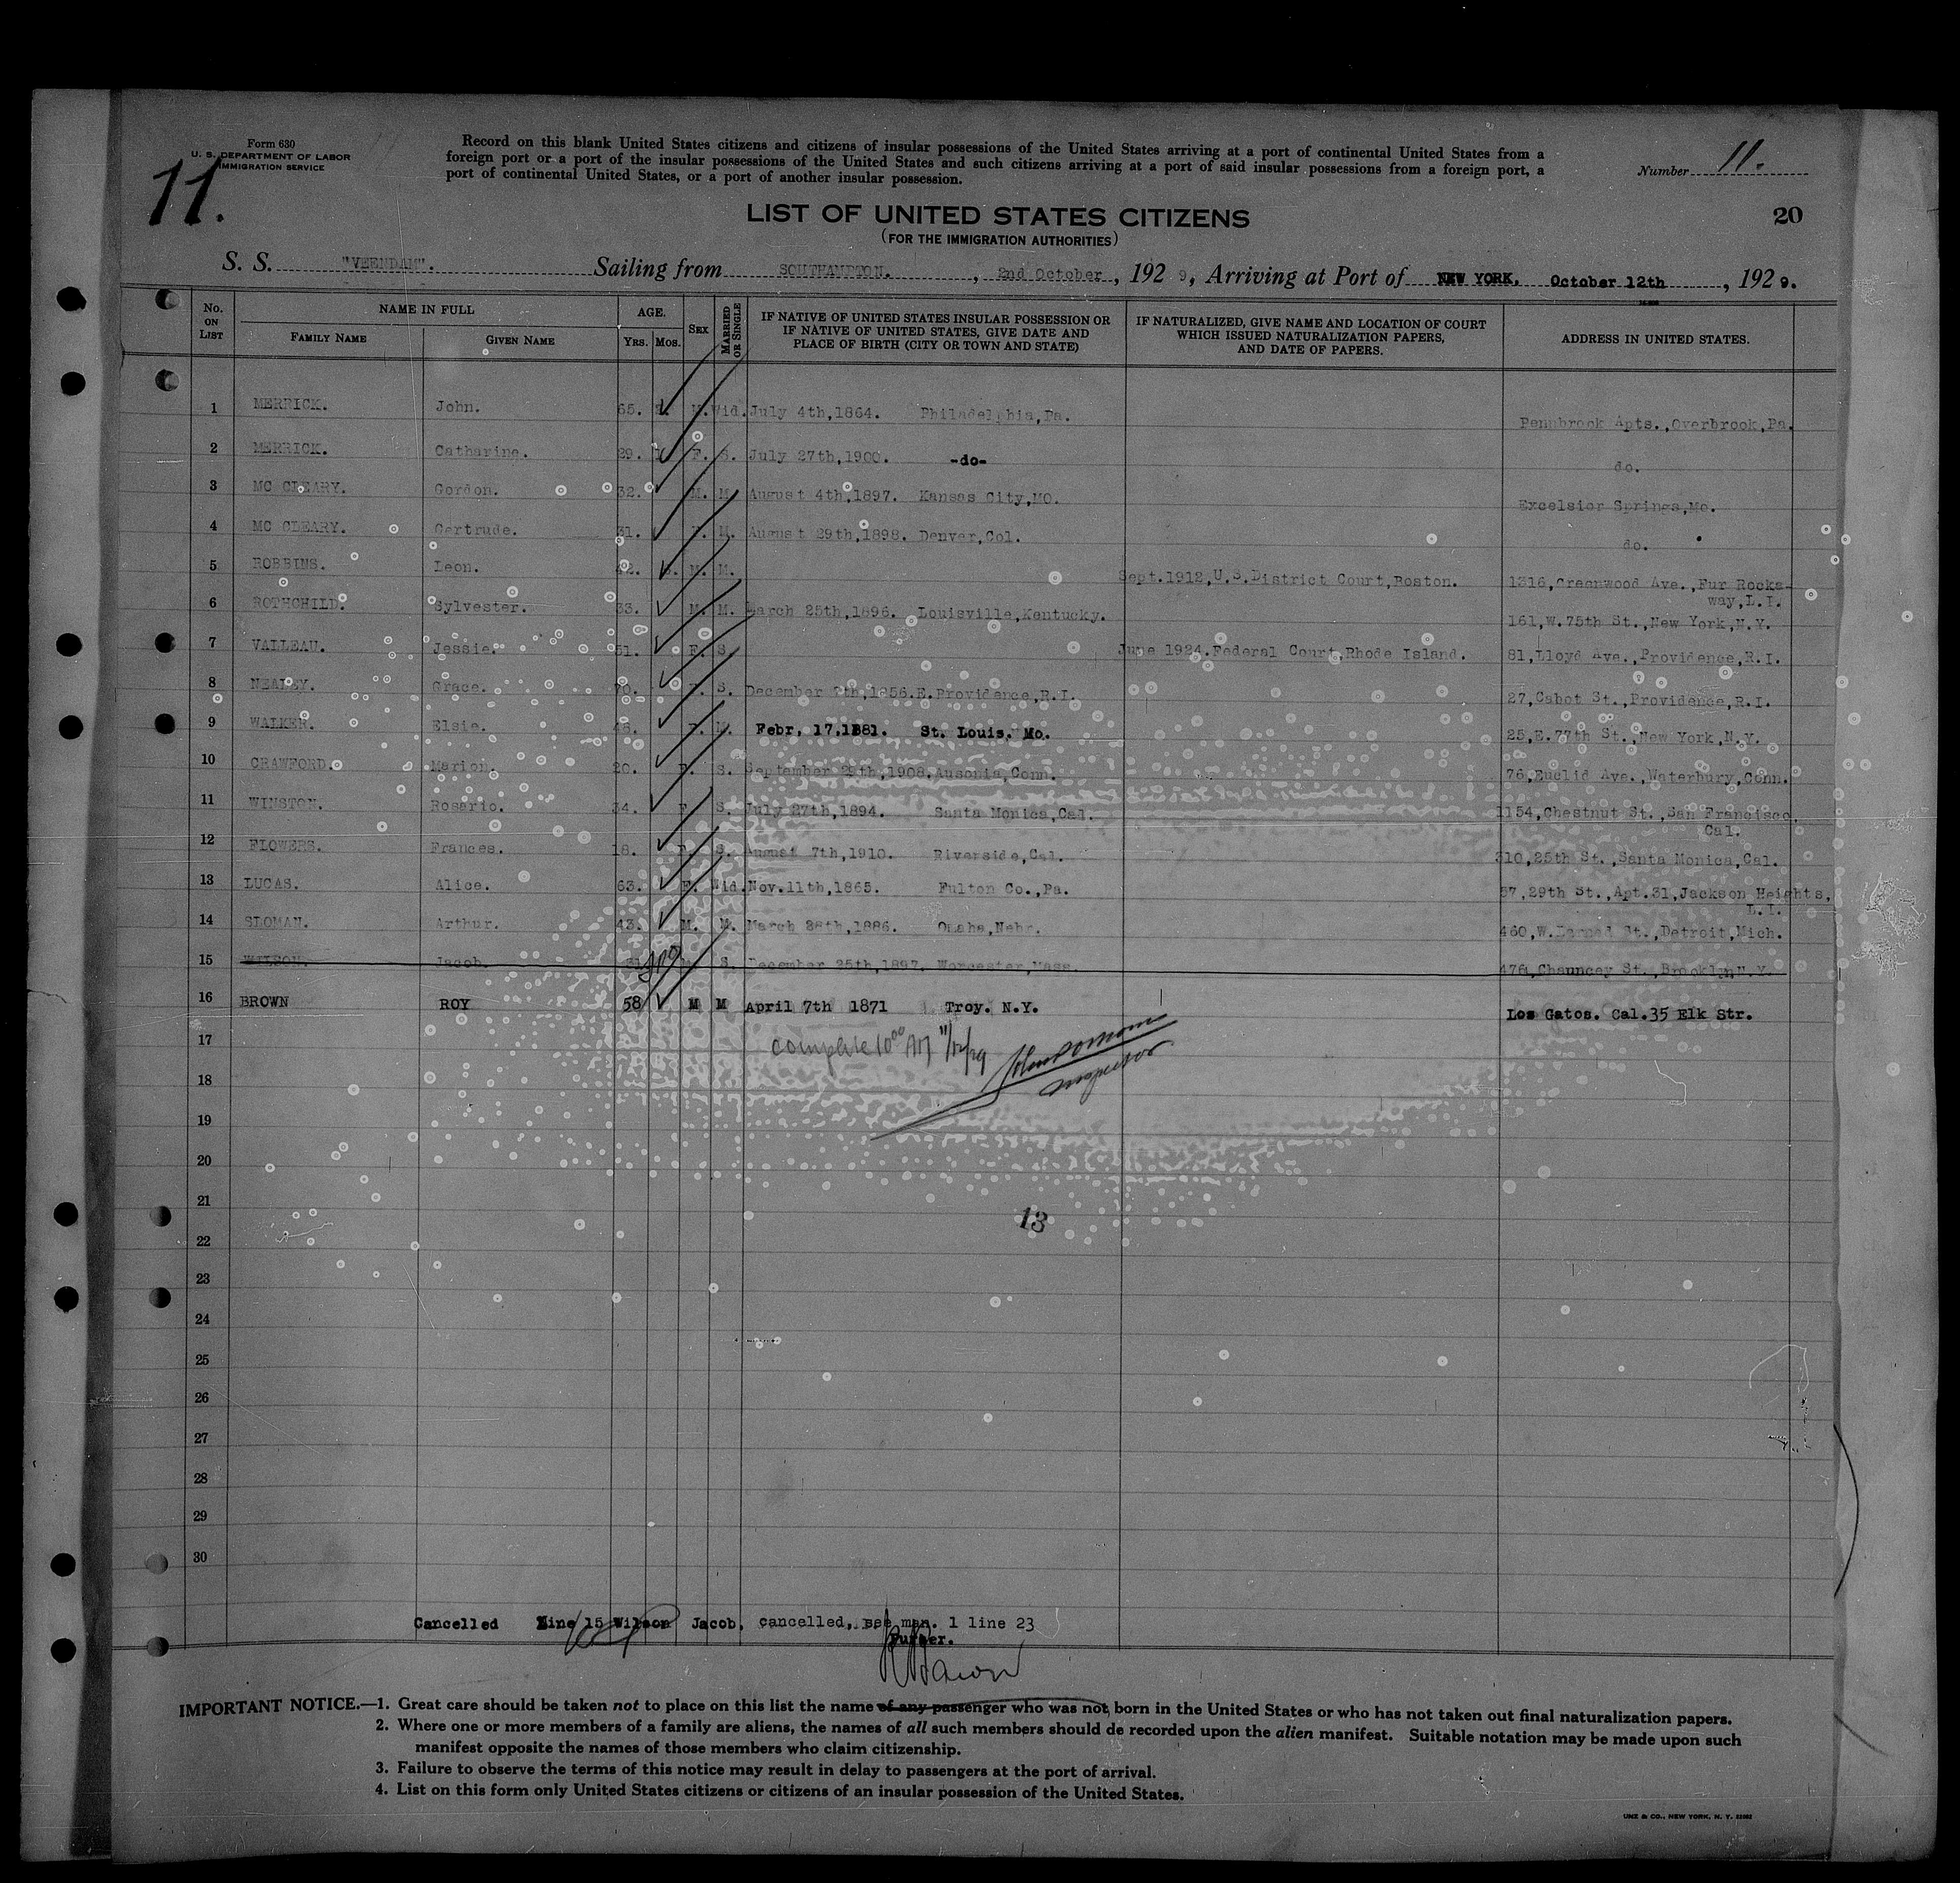 Form 630
U. S. DEPARTMENT OF LABOR
IMMIGRATION SERVICE
11.
Record on this blank United States citizens and citizens of insular possessions of the United States arriving at a port of continental United States from a
foreign port or a port of the insular possessions of the United States and such citizens arriving at a port of said insular possessions from a foreign port, a
port of continental United States, or a port of another insular possession.
Number 11.
LIST OF UNITED STATES CITIZENS
(FOR THE IMMIGRATION AUTHORITIES)
20
S. S. "VEENDAM". Sailing from SOUTHAMPTON. , 2nd October , 192 9, Arriving at Port of NEW YORK, October 12th , 192 9.
No. ON LIST NAME IN FULL FAMILY NAME GIVEN NAME AGE. YRS. MOS. SEX MARRIED OR SINGLE
IF NATIVE OF UNITED STATES INSULAR POSSESSION OR
IF NATIVE OF UNITED STATES, GIVE DATE AND
PLACE OF BIRTH (CITY OR TOWN AND STATE)
IF NATURALIZED, GIVE NAME AND LOCATION OF COURT
WHICH ISSUED NATURALIZATION PAPERS,
AND DATE OF PAPERS.
ADDRESS IN UNITED STATES.
1 MERRICK. John. 65. M. Wid. July 4th,1864. Philadelphia,Pa. Pennbrook Apts.,Overbrook,Pa.
2 MERRICK. Catharine. 29. F. S. July 27th,1900. -do- do.
3 MC CLEARY. Gordon. 32. M. M. August 4th,1897. Kansas City,MO. Excelsior Springs,Mo.
4 MC CLEARY. Gertrude. 31. F. M. August 29th,1898. Denver,Col. do.
5 ROBBINS. Leon. 42. M. M. Sept.1912,U.S.District Court,Boston. 1316,Greenwood Ave.,Fur Rocka-
way,L.I.
6 ROTHCHILD. Sylvester. 33. M. M. March 25th,1896. Louisville,Kentucky. 161,W.75th St.,New York,N.Y.
7 VALLEAU. Jessie. 51. F. S. June 1924.Federal Court,Rhode Island. 81,Lloyd Ave.,Providence,R.I.
8 NEALEY. Grace. 70. F. S. December 9th,1856.E.Providence,R.I. 27,Cabot St.,Providence,R.I.
9 WALKER. Elsie. 48. F. M. Febr, 17.1881. St. Louis. Mo. 25,E.77th St.,New York,N.Y.
10 CRAWFORD. Marion. 20. F. S. September 29th,1908.Ausonia,Conn. 76,Euclid Ave.,Waterbury,Conn.
11 WINSTON. Rosario. 34. F. S. July 27th,1894. Santa Monica,Cal. 1154,Chestnut St.,San Francisco,
Cal.
12 FLOWERS. Frances. 18. F. S. August 7th,1910. Riverside,Cal. 310,25th St.,Santa Monica,Cal.
13 LUCAS. Alice. 63. F. Wid. Nov.11th,1865. Fulton Co.,Pa. 57,29th St.,Apt.31,Jackson Heights,
L.I.
14 SLOMAN. Arthur. 43. M. M. March 28th,1886. Omaha,Nebr. 460,W. St.,Detroit,Mich.
15 WILSON. Jacob. 31 S. December 25th,1897. Worcester,Mass. 476,Chauncey St.,Brooklyn,N.Y.
16 BROWN ROY 58 M M April 7th 1871 Troy. N.Y. Los Gatos. Cal.35 Elk Str.
17
complete 10 00 AM
inspector
18
19
20
21
13
22
23
24
25
26
27
28
29
30
Cancelled Line 15 Wilson Jacob, cancelled, see man. 1 line 23
Purser.
IMPORTANT NOTICE.—1. Great care should be taken not to place on this list the name of any passenger who was not born in the United States or who has not taken out final naturalization papers.
2. Where one or more members of a family are aliens, the names of all such members should de recorded upon the alien manifest. Suitable notation may be made upon such
manifest opposite the names of those members who claim citizenship.
3. Failure to observe the terms of this notice may result in delay to passengers at the port of arrival.
4. List on this form only United States citizens or citizens of an insular possession of the United States.
UNZ & CO., NEW YORK, N. Y.